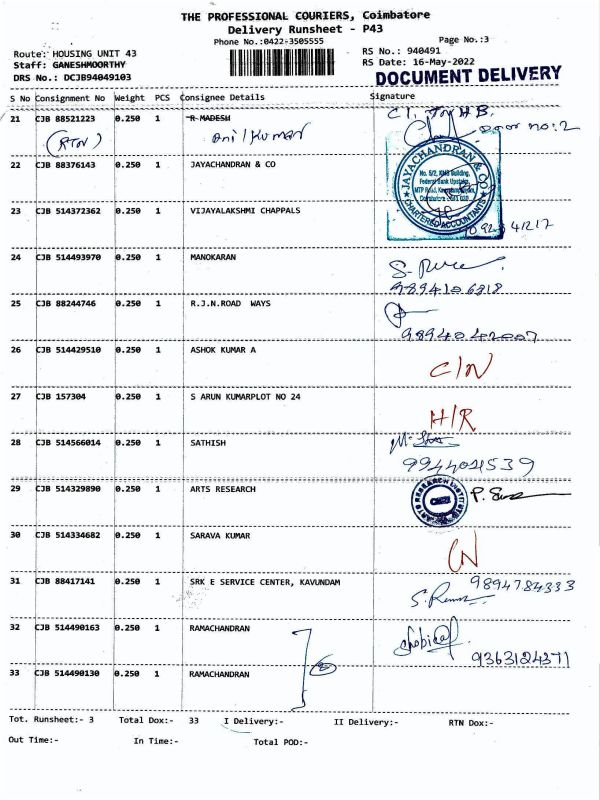 THE PROFESSIONAL COURIERS, Coimbatore
Delivery Runsheet - P43
Phone No.:0422-3505555 Page No.:3
Route: HOUSING UNIT 43 RS No.: 940491
Staff: GANESHMOORTHY RS Date: 16-May-2022
DRS No.: DCJB94049103 DOCUMENT DELIVERY
S No Consignment No Weight PCS Consignee Details Signature
21 CJB 88521223 0.250 1 R MADESH
(RTN) Anil Kumar Door no:2
22 CJB 88376143 0.250 1 JAYACHANDRAN & CO
JAYACHANDRAN & CO
No. 5/2, KMS Building,
Federal Bank Upstairs,
CHARTERED ACCOUNTANTS
23 CJB 514372362 0.250 1 VIJAYALAKSHMI CHAPPALS
24 CJB 514493970 0.250 1 MANOKARAN
9894106318
25 CJB 88244746 0.250 1 R.J.N.ROAD WAYS
9894042007
26 CJB 514429510 0.250 1 ASHOK KUMAR A
C/N
27 CJB 157304 0.250 1 S ARUN KUMARPLOT NO 24
H/R
28 CJB 514566014 0.250 1 SATHISH
9944021539
29 CJB 514329890 0.250 1 ARTS RESEARCH
30 CJB 514334682 0.250 1 SARAVA KUMAR
CN
31 CJB 88417141 0.250 1 SRK E SERVICE CENTER, KAVUNDAM 9894784333
32 CJB 514490163 0.250 1 RAMACHANDRAN
9363124371
33 CJB 514490130 0.250 1 RAMACHANDRAN
Tot. Runsheet:- 3 Total Dox:- 33 I Delivery:- II Delivery:- RTN Dox:-
Out Time:- In Time:- Total POD:-